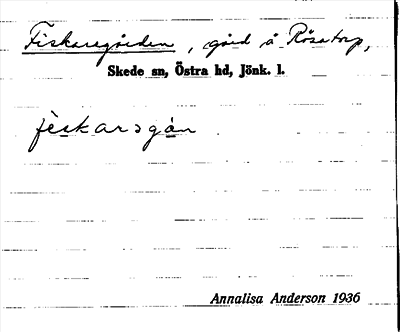 Fiskaregården, gård å Rösatorp,
Skede sn, Östra hd, Jönk. l.
fèskarsgán
Annalisa Anderson 1936